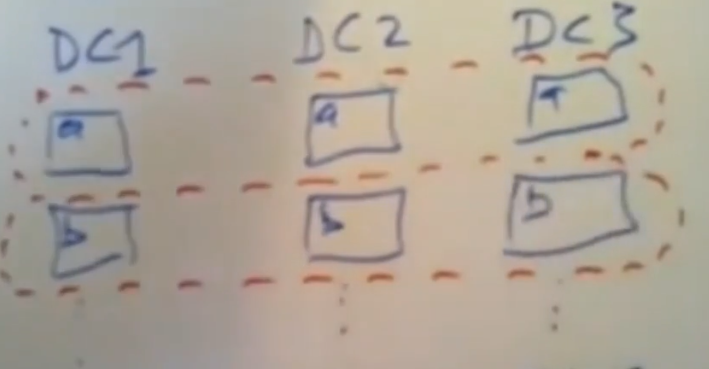 DC1 DC2 DC3
a a a
b b b